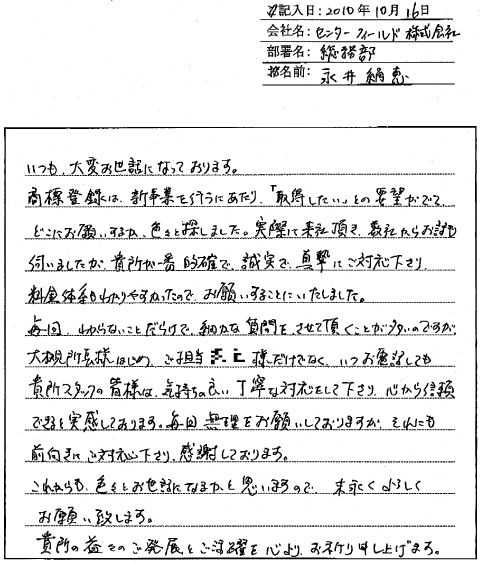 ご記入日：2010年10月16日
会社名：センターフィールド株式会社
部署名：総務部
お名前：永井絹恵
いつも、大変お世話になっております。
商標登録は、新事業を行うにあたり、「取得したい」との要望がでて、
どこにお願いするか、色々と探しました。実際に来社頂き、数社からお話も
伺いましたが、貴所が一番的確で、誠実で、真摯にご対応下さり、
料金体系もわかりやすかったので、お願いすることにいたしました。
毎回、わからないことだらけで、細かな質問をさせて頂くことが多いのですが、
大槻所長様はじめ、ご担当 様だけでなく、いつお電話しても
貴所スタッフの皆様は、気持ちの良い丁寧な対応をして下さり、心から信頼
できると実感しております。毎回無理をお願いしておりますが、それにも
前向きにご対応下さり、感謝しております。
これからも、色々とお世話になるかと思いますので、末永くよろしく
お願い致します。
貴所の益々のご発展とご活躍を心より、お祈り申し上げます。